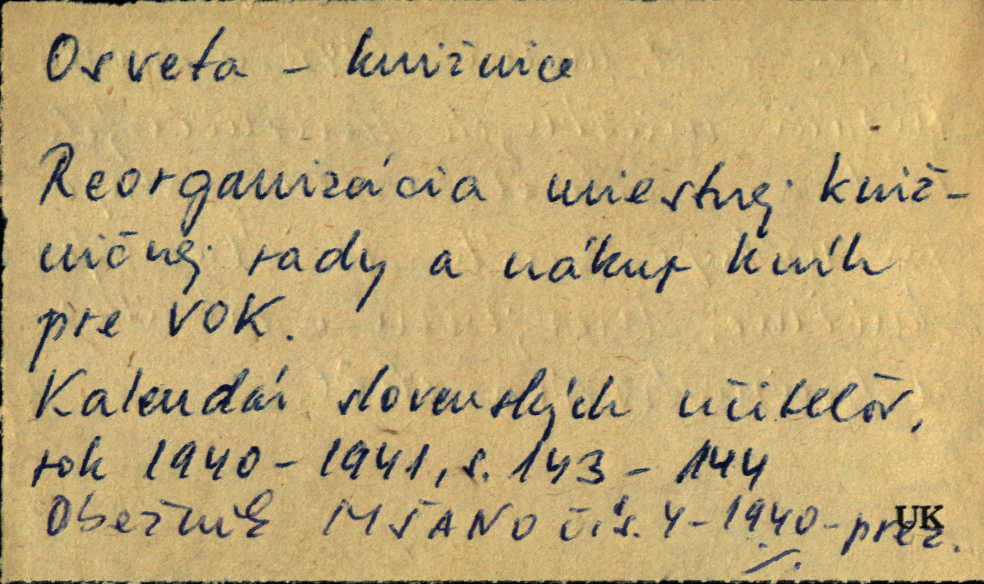 Osveta - knižnice
Reorganizácia miestnej kniž-
ničnej rady a nákup kníh
pre VOK.
Kalendár slovenských učiteľov,
rok 1940-1941, s. 143-144
Obežník MŠANO čís. 4-1940-prez.
UK